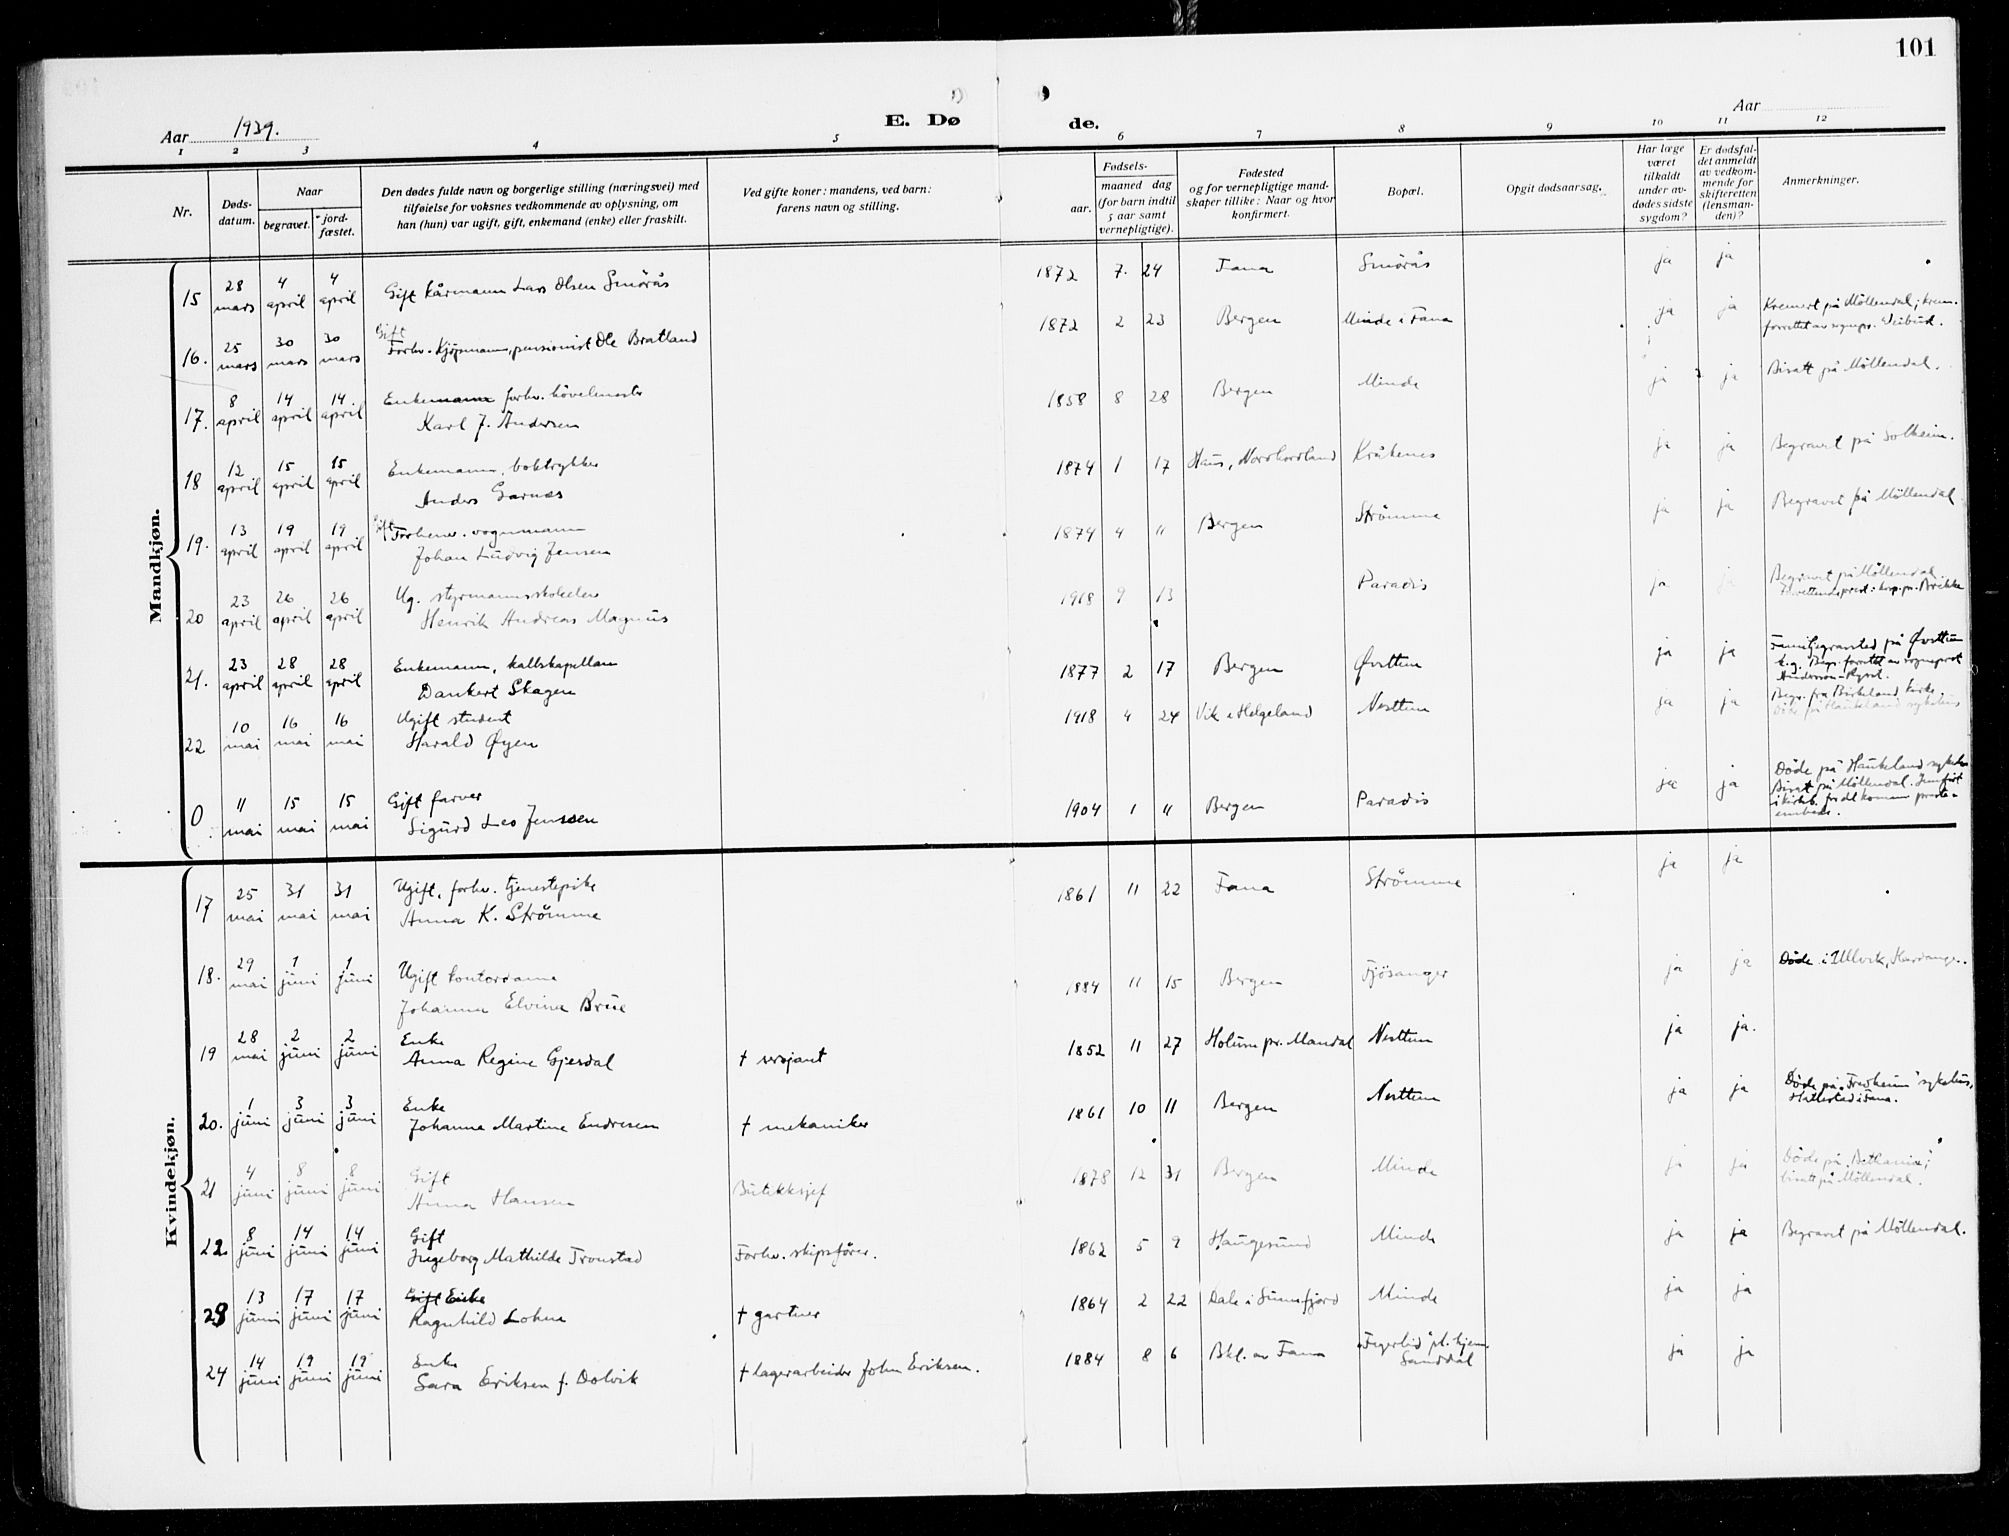 101
Aar 1939.
E. Dø
de.
Aar
1 2 3 4 5 6 7 8 9 10 11 12
Nr.
Døds-
datum.
Naar
begravet.
jord-
fæstet.
Den dødes fulde navn og borgerlige stilling (næringsvei) med
tilføielse for voksnes vedkommende av oplysning, om
han (hun) var ugift, gift, enkemand (enke) eller fraskilt.
Ved gifte koner: mandens, ved barn:
farens navn og stilling.
Fødsels-
aar.
maaned dag
(for barn indtil
5 aar samt
vernepligtige).
Fødested
og for vernepligtige mand-
skaper tillike: Naar og hvor
konfirmert.
Bopæl.
Opgit dødsaarsag.
Har læge
været
tilkaldt
under av-
dødes sidste
sygdom?
Er dødsfal-
det anmeldt
av vedkom-
mende for
skifteretten
(lensman-
den)?
Anmerkninger.
Mandkjøn.
15 28 mars 4 april 4 april Gift kårmann Lars Olsen Smörås 1872 7. 24 Fana Smörås ja ja
16. 25 mars 30 mars 30 mars Gift
Forhv. Kjøpmann, pensionist Ole Bratland 1872 2 23 Bergen Minde i Fana ja ja Kremert på Möllendal; krem.
forrettet av sognepr.
17. 8 april 14 april 14 april Enkemann forhv. hövelmester
Karl J. Andersen 1858 8 28 Bergen Minde ja ja Bisatt på Möllendal.
18 12 april 15 april 15 april Enkemann, boktrykker
Anders Garnes 1874 1 17 Haus, Nordhordland Kråkenes ja ja Begravet på Solheim.
19. 13 april 19 april 19 april Gift Forhenv. vognmann
Johan Ludvig Jensen 1874 4 11 Bergen Strömme ja ja Begravet på Möllendal
20 23 april 26 april 26 april Ug. styrmannsskoleelev
Henrik Andreas Magnus 1918 9 13 Paradis ja ja Begravet på Möllendal.
21. 23 april 28 april 28 april Enkemann, kallskapellan
Dankert Skagen 1877 2 17 Bergen Øvsttun ja ja Familiegravsted på Øvsttun
k.g. Begr. forrettet av sogneprest
22 10 mai 16 mai 16 mai Ugift student
Harald Øyen 1918 4 24 Vik i Helgeland Nesttun ja ja Begr. fra Birkeland kirke.
Döde på Haukeland sykehus
0 11 mai 15 mai 15 mai Gift farver
Sigurd Leo Jenssen 1904 1 11 Bergen Paradis ja ja Döde på Haukeland sykehus
Bisatt på Möllendal. Innfört
i kirkeb. for
embede.
Kvindekjøn.
17 25 mai 31 mai 31 mai Ugift, forhv. tjenestepike
Anna K. Strömme 1861 11 22 Fana Strömme ja ja
18. 29 mai 1 juni 1 juni Ugift kontordame
Johanna Elvina Brüe 1884 11 15 Bergen Fjösanger ja ja Döde i Ulvik, Hardanger.
19 28 mai 2 juni 2 juni Enke
Anna Regine Gjesdal † sersjant 1852 11 27 Holum pr. Mandal Nesttun ja ja.
20. 1 juni 3 juni 3 juni Enke
Johanna Martine Endresen † mekaniker 1861 10 11 Bergen Nesttun ja ja Döde på "Fredheim" sykehus,
Hattestad i Fana.
21 4 juni 8 juni 8 juni Gift
Anna Hansen Butikksjef 1878 12 31 Bergen Minde ja ja Döde på "Bethania";
bisatt på Möllendal.
22. 8 juni 14 juni 14 juni Gift
Ingeborg Mathilde Tronstad Forhv. skipsfører. 1862 5 9 Haugesund Minde ja ja Begravet på Möllendal.
23 13 juni 17 juni 17 juni Gift Enke
Ragnhild Lohne † gartner 1864 2 22 Dale i Sunnfjord Minde ja ja
24 14 juni 19 juni 19 juni Enke
Sara Eriksen f. Dolvik † lagerarbeider John Eriksen. 1884 8 6 Bkl. av Fana "Fagerlid" pl. hjem
Sanddal ja ja